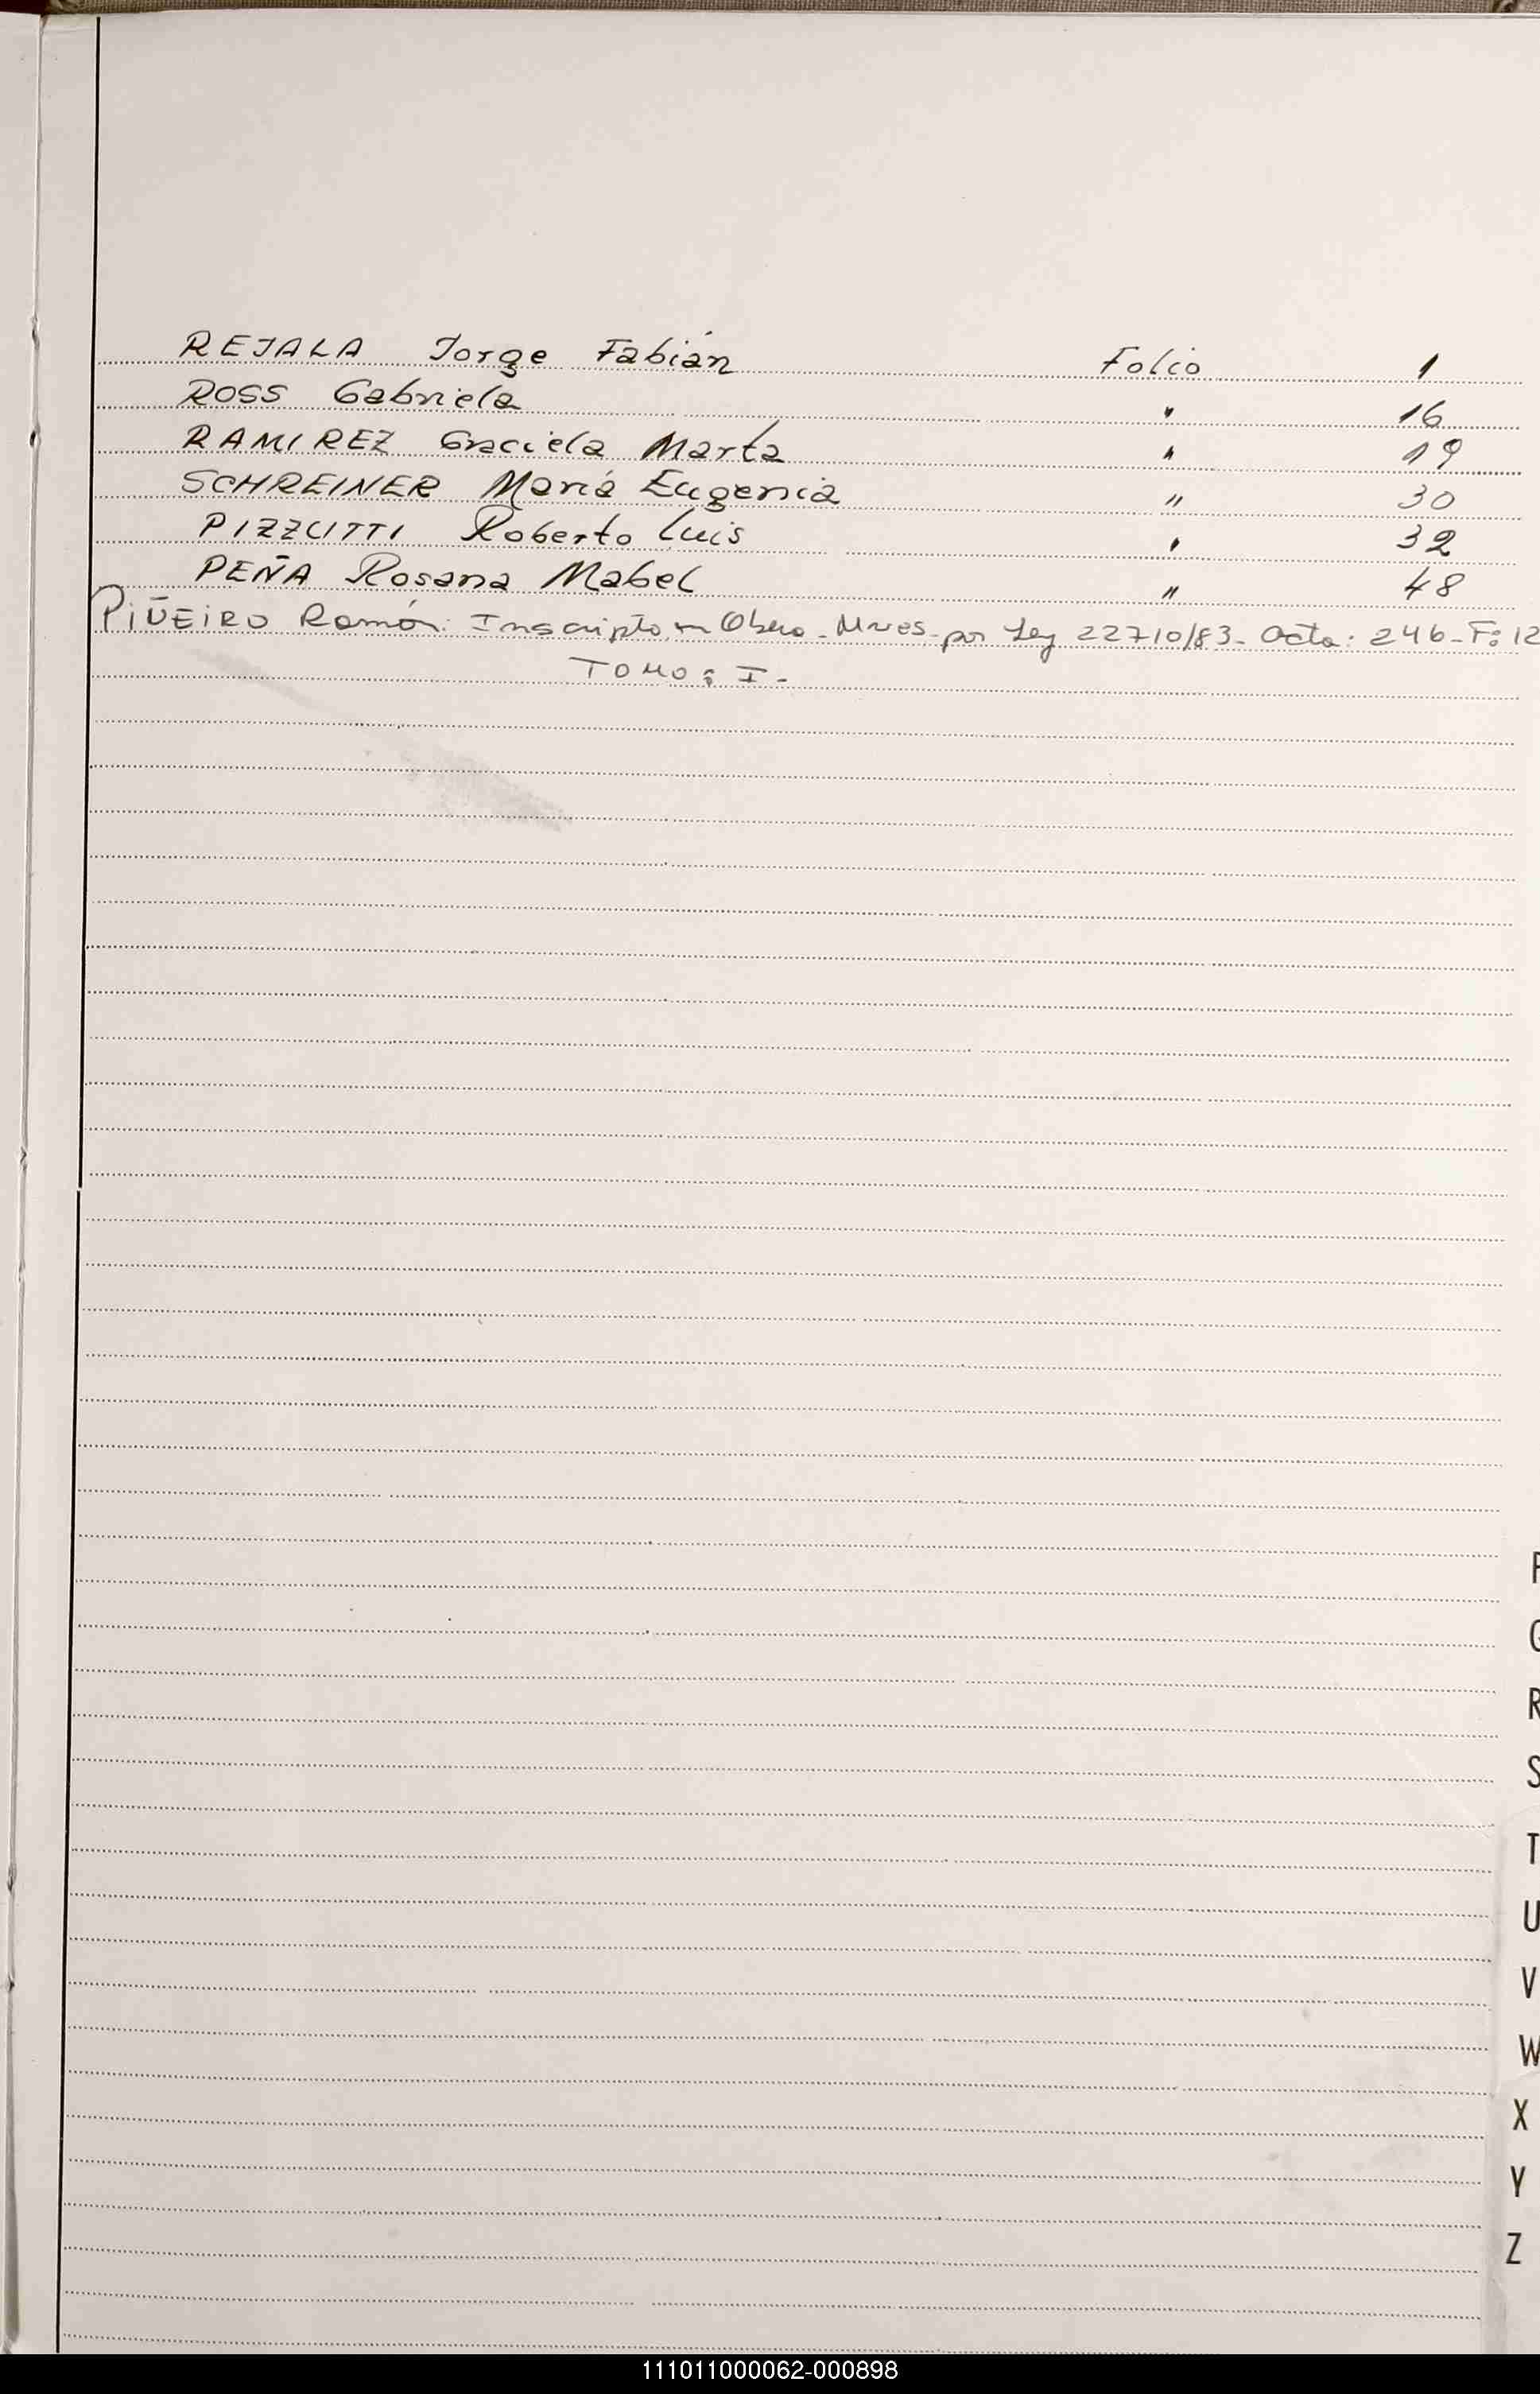 REJALA Jorge Fabián Folio 1
ROSS Gabriela " 16
RAMIREZ Graciela Marta " 19
SCHREINER María Eugenia " 30
PIZZUTTI Roberto Luis " 32
PEÑA Rosana Mabel " 48
PiÑEiRO Ramón. Inscripto en Obera - Mnes. por Ley 22710/83 - Acta: 246 - F: 12
TOMO: I -
R
S
T
U
V
W
X
Y
Z
111011000062-000898